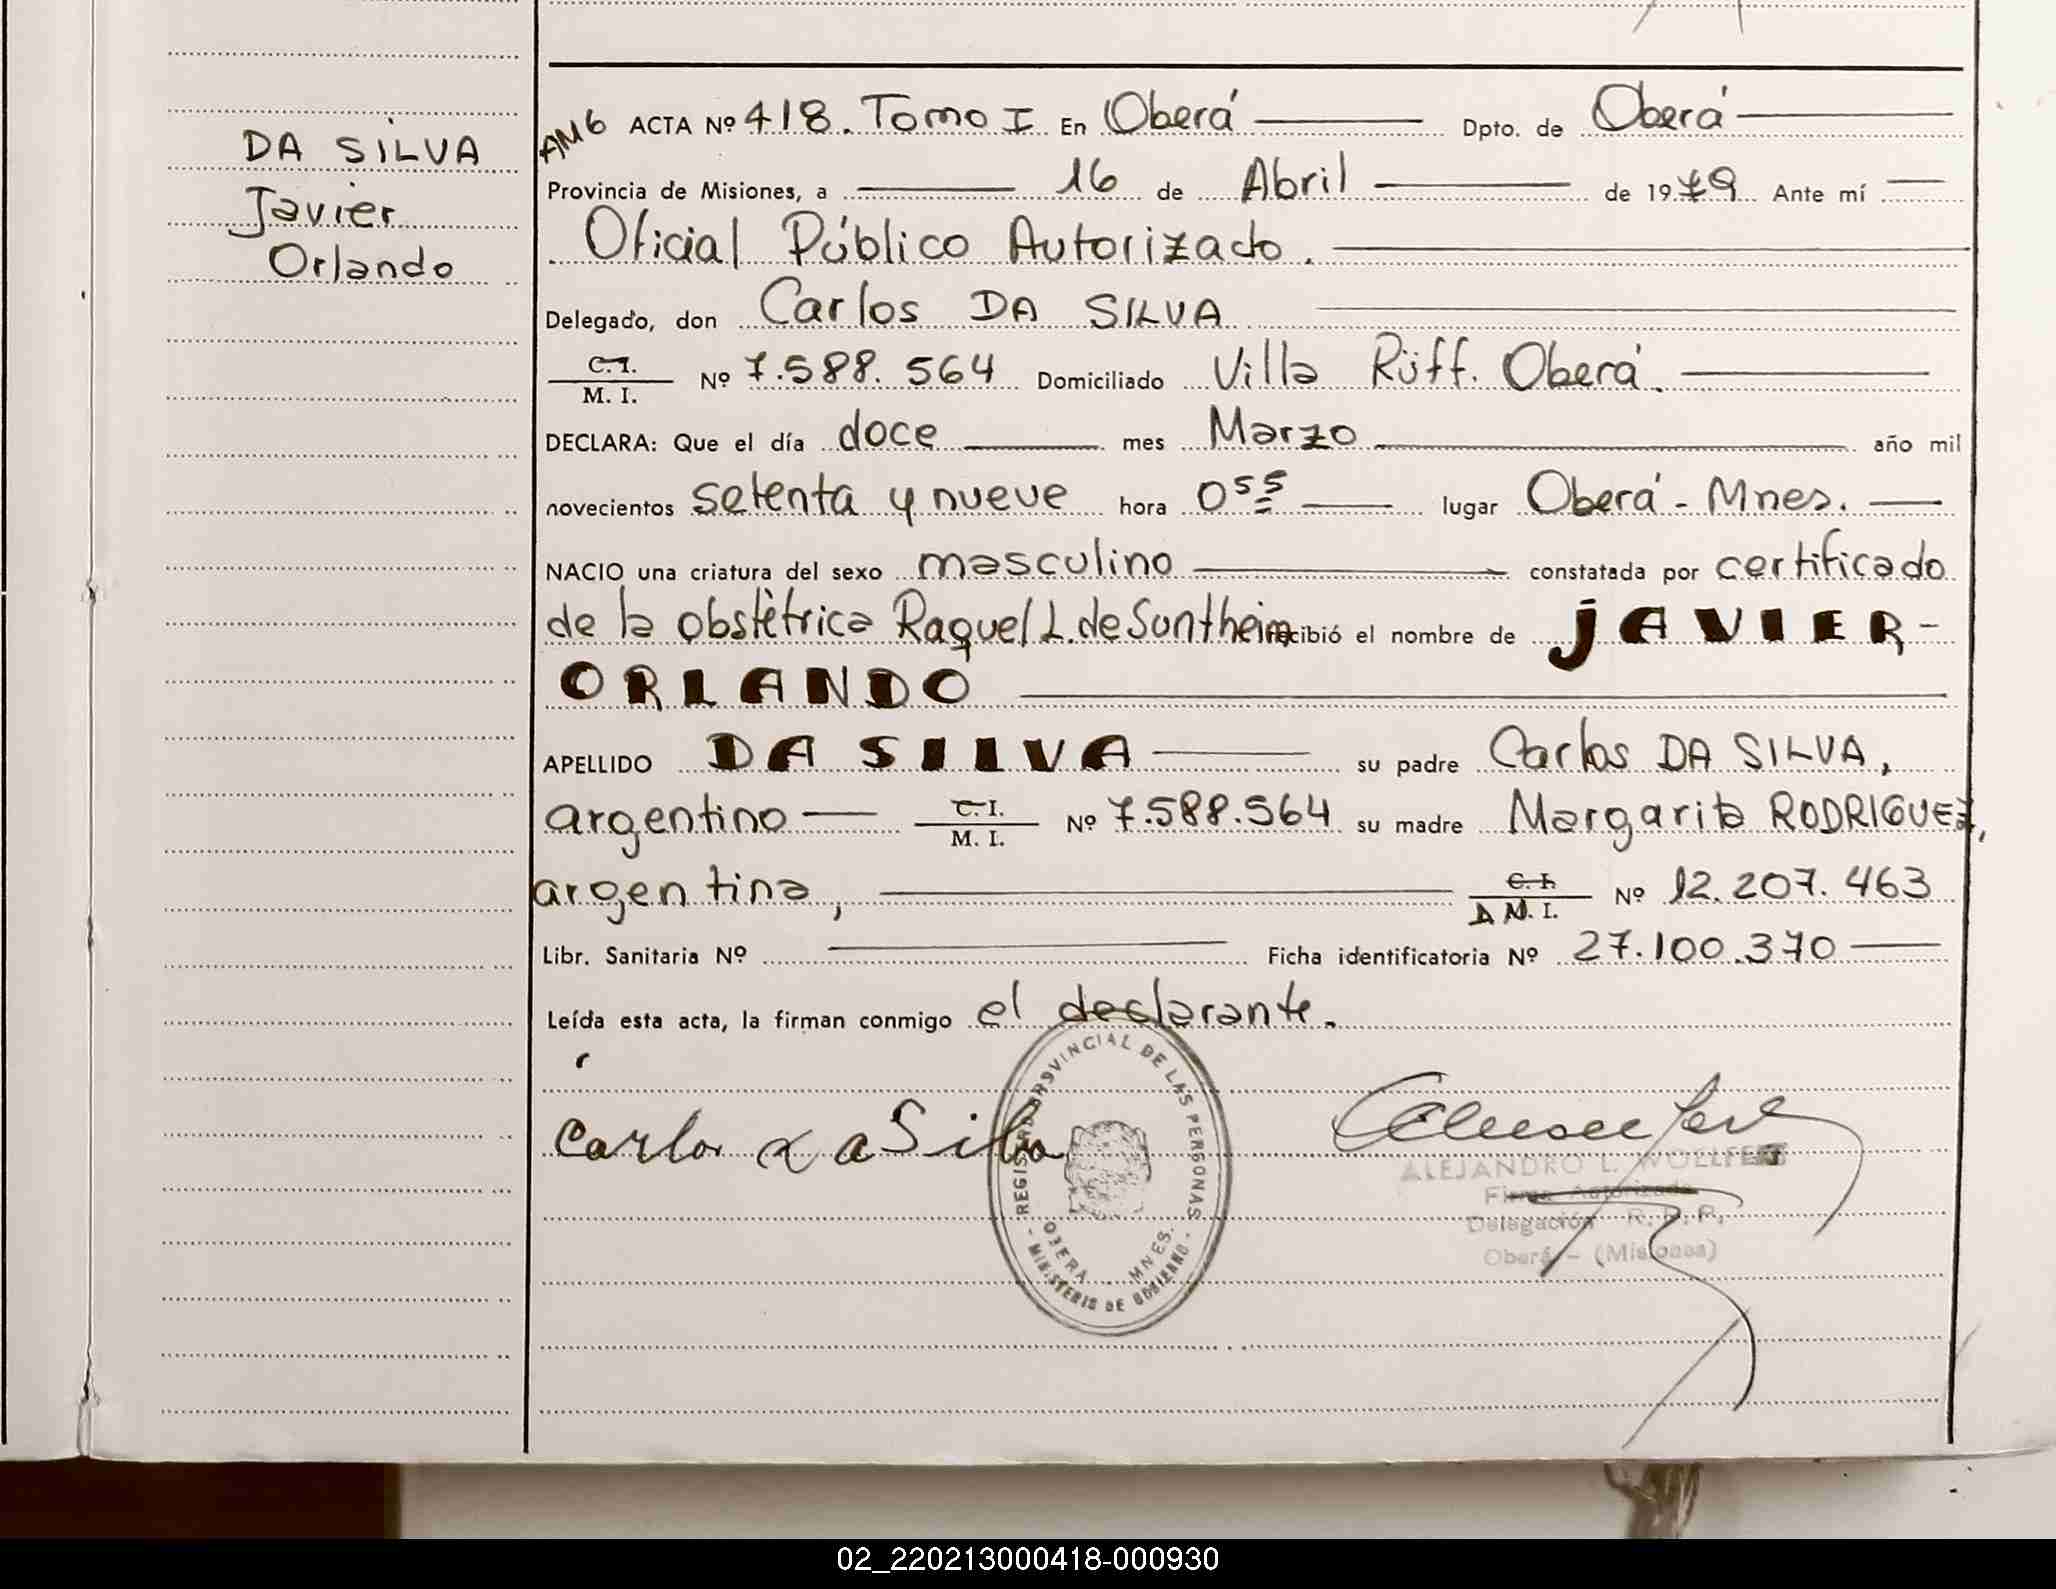 DA SILVA
Javier
Orlando
AM6 ACTA Nº 418. Tomo I En Oberá Dpto. de Oberá
Provincia de Misiones, a 16 de Abril de 1979 Ante mí
Oficial Público Autorizado.
Delegado, don Carlos DA SILVA
C.I.
M. I. Nº 7.588.564 Domiciliado Villa Rüff. Oberá.
DECLARA: Que el día doce mes Marzo año mil
novecientos setenta y nueve hora 0 55 lugar Oberá - Mnes.
NACIO una criatura del sexo masculino constatada por certificado
de la obstétrica Raquel L. de Sontheim recibió el nombre de JAVIER-
ORLANDO
APELLIDO DA SILVA su padre Carlos DA SILVA,
argentino C.I.
M. I. Nº 7.588.564 su madre Margarita RODRIGUEZ,
argentina, C.I.
D N. I. Nº 12.207.463
Libr. Sanitaria Nº Ficha identificatoria Nº 27.100.370
Leída esta acta, la firman conmigo el declarante.
Carlos Da Silva
REGISTRO PROVINCIAL DE LAS PERSONAS
OBERA - MNES.
- MINISTERIO DE GOBIERNO -
ALEJANDRO L.
Firma Autorizada
Delegación R. P. P.
Oberá - (Misiones)
02_220213000418-000930